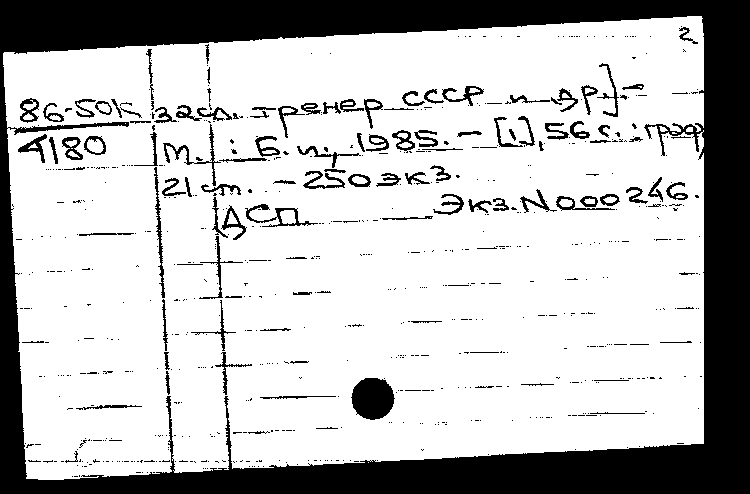 2
86-50к засл. тренер СССР и др.].-
4180 М. : Б.и., 1985. - [1], 56 с. : граф,
21 см. - 250 экз.
ДСП. Экз. N 000246.